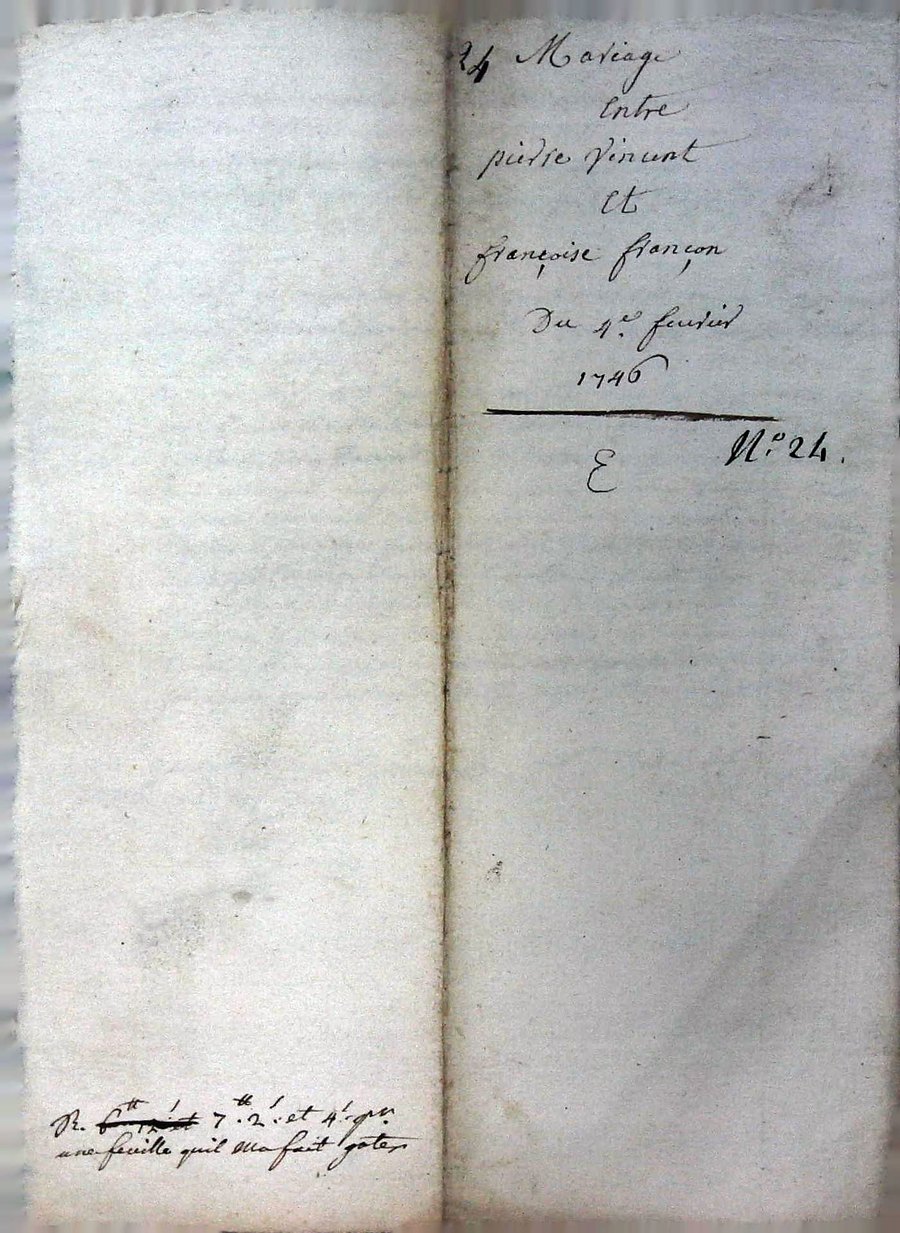 24 Mariage
Entre
pierre Vincent
Et
françoise françon
Du 4e. feuvrier
1746
N.o 24.
E
R. 6tt 12s et 7tt. 2s. et 4s. pr.
une feuille quil ma fait gater